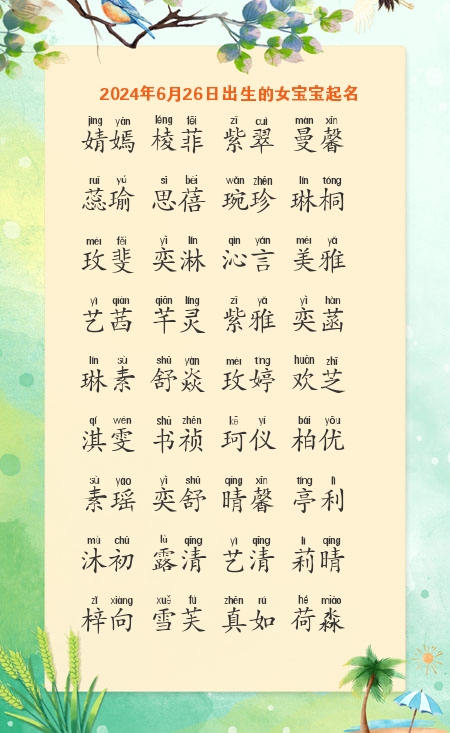 2024年6月26日出生的女宝宝起名
jìng yān léng fēi zǐ cuì màn xīn
婧嫣 棱菲 紫翠 曼馨
ruǐ yú sī bèi wǎn zhēn lín tóng
蕊瑜 思蓓 琬珍 琳桐
méi fěi yì lín qìn yán měi yǎ
玫斐 奕淋 沁言 美雅
yì qiàn qiān líng zǐ yǎ yì hàn
艺茜 芊灵 紫雅 奕菡
lín sù shū yàn méi tíng huān zhī
琳素 舒焱 玫婷 欢芝
qí wén shū zhēn kē yí bǎi yōu
淇雯 书祯 珂仪 柏优
sù yáo yì shū qíng xīn tíng lì
素瑶 奕舒 晴馨 亭利
mù chū lù qīng yì qīng lì qíng
沐初 露清 艺清 莉晴
zǐ xiàng xuě fú zhēn rú hé miǎo
梓向 雪芙 真如 荷淼